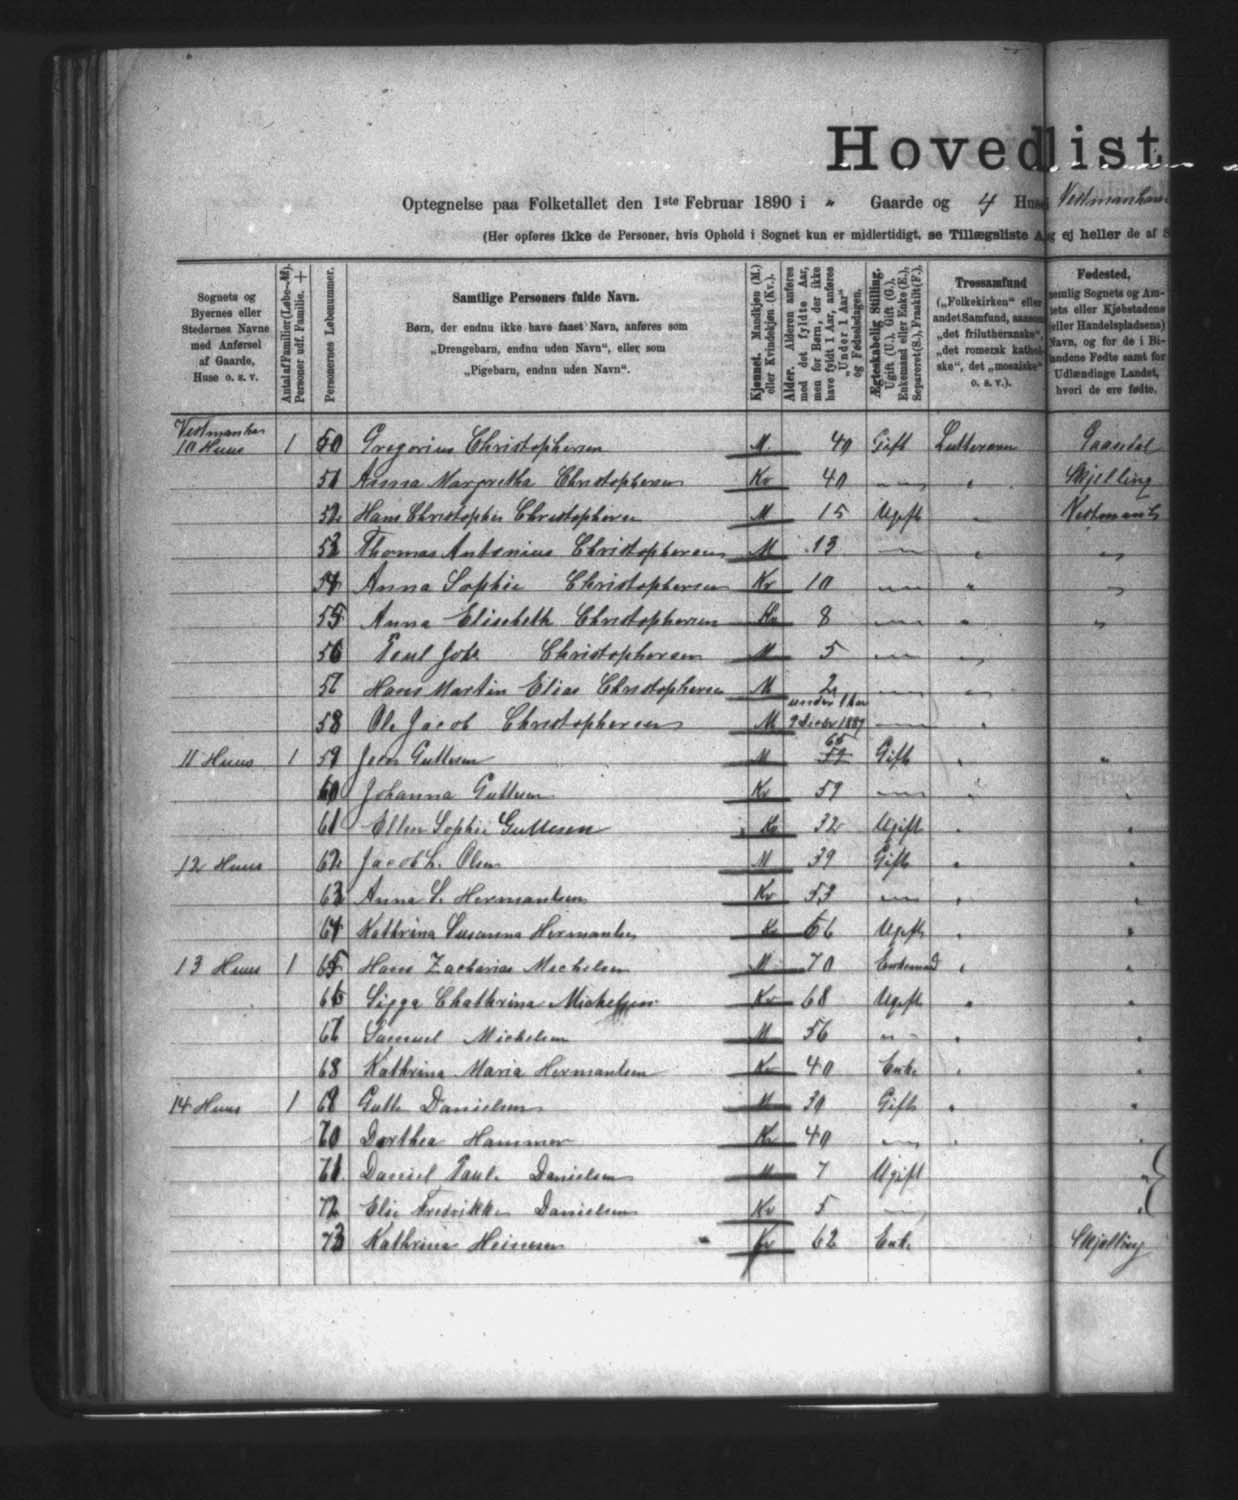 Hovedlist
Optegnelse paa Folketallet den 1ste Februar 1890 i " Gaarde og 4 Huse Vestmanhavn
(Her opføres ikke de Personer, hvis Ophold i Sognet kun er midlertidigt, se Tillægsliste A, og ej heller de af S
Sognets og Byernes eller Stedernes Navne med Anførsel af Gaarde, Huse o. s. v.
Antal af Familier (Løbe-Nr.). Personer udf. Familie. +
Personernes Løbenummer.
Samtlige Personers fulde Navn.
Børn, der endnu ikke have faaet Navn, anføres som
„Drengebarn, endnu uden Navn", eller som
„Pigebarn, endnu uden Navn".
Kjønnet. Mandkjøn (M.) eller Kvindekjøn (Kv.).
Alder. Alderen anføres med det fyldte Aar, men for Børn, der ikke have fyldt 1 Aar, anføres „Under 1 Aar" og Fødselsdagen.
Ægteskabelig Stilling. Ugift (U.), Gift (G.), Enkemand eller Enke (E.), Separeret (S.), Fraskilt (F.).
Trossamfund („Folkekirken" eller andet Samfund, saasom „det frilutheranske", „det romersk katholske", det „mosaiske" o. s. v.).
Fødested,
nemlig Sognets og Amtets eller Kjøbstadens (eller Handelspladsens) Navn, og for de i Bilandene Fødte samt for Udlændinge Landet, hvori de ere fødte.
Vestmanhavn
10 Huus 1 50 Gregorius Christophersen M. 49 Gift Lutheraner Gaasdal
51 Anna Margretha Christophersen Kv 40 " " Skjelling
52 Hans Christopher Christophersen M 15 Ugift " Vestmanh
53 Thomas Antonius Christophersen M 13 " " "
54 Anna Sophie Christophersen Kv 10 " " "
55 Anna Elisebeth Christophersen Kv 8 " " "
56 Poul Joh. Christophersen M 5 " "
57 Hans Martin Elias Christophersen M 2 " "
under 1 Aar
58 Ole Jacob Christophersen M 9 Decbr 1889 " "
65
11 Huus 1 59 Joen Guttesen M 59 Gift " "
60 Johanna Guttesen Kv 59 " " "
61 Ellen Sophie Guttesen Kv 32 Ugift " "
12 Huus 62 Jacob L. Olsen M 39 Gift " "
63 Anna S. Hermansen Kv 53 " " "
64 Kathrina Susanna Hermansen Kv 56 Ugift " "
13 Huus 1 65 Hans Zacharias Michelsen M 70 Enkemand " "
66 Sigga Chathrina Michelsen Kv 68 Ugift " "
67 Samuel Michelsen M 56 " " "
68 Kathrina Maria Hermansen Kv 40 Enke " "
14 Huus 1 69 Gutte Danielsen M 39 Gift " "
70 Dorthea Hammer Kv 40 " " "
71 Daniel Paul. Danielsen M 7 Ugift "
72 Else Fredrikke Danielsen Kv 5 " "
73 Kathrina Heinesen Kv 62 Enke Skjelling